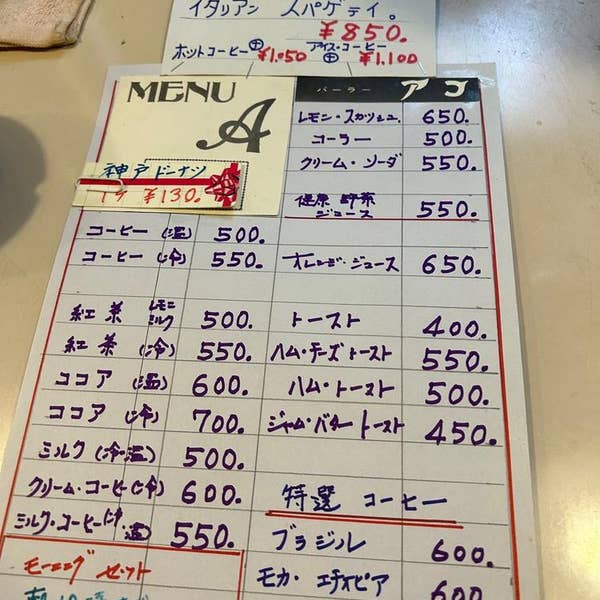 イタリアン スパゲティ。
¥850.
ホットコーヒー 付 ¥1,050 アイス・コーヒー 付 ¥1,100
MENU
A
神戸ドーナツ
1ケ ¥130.
コーヒー (温) 500.
コーヒー (冷) 550.
紅茶 レモン ミルク 500.
紅茶 (冷) 550.
ココア (温) 600.
ココア (冷) 700.
ミルク (冷・温) 500.
クリーム・コーヒー(冷) 600.
ミルク・コーヒー(冷・温) 550.
モーニング セット
パーラー アコ
レモン・スカッシュ 650.
コーラー 500.
クリーム・ソーダ 550.
健康 野菜 ジュース 550.
オレンジ・ジュース 650.
トースト 400.
ハム・チーズトースト 550.
ハム・トースト 500.
ジャム・バタートースト 450.
特選 コーヒー
ブラジル 600.
モカ・エチオピア 600